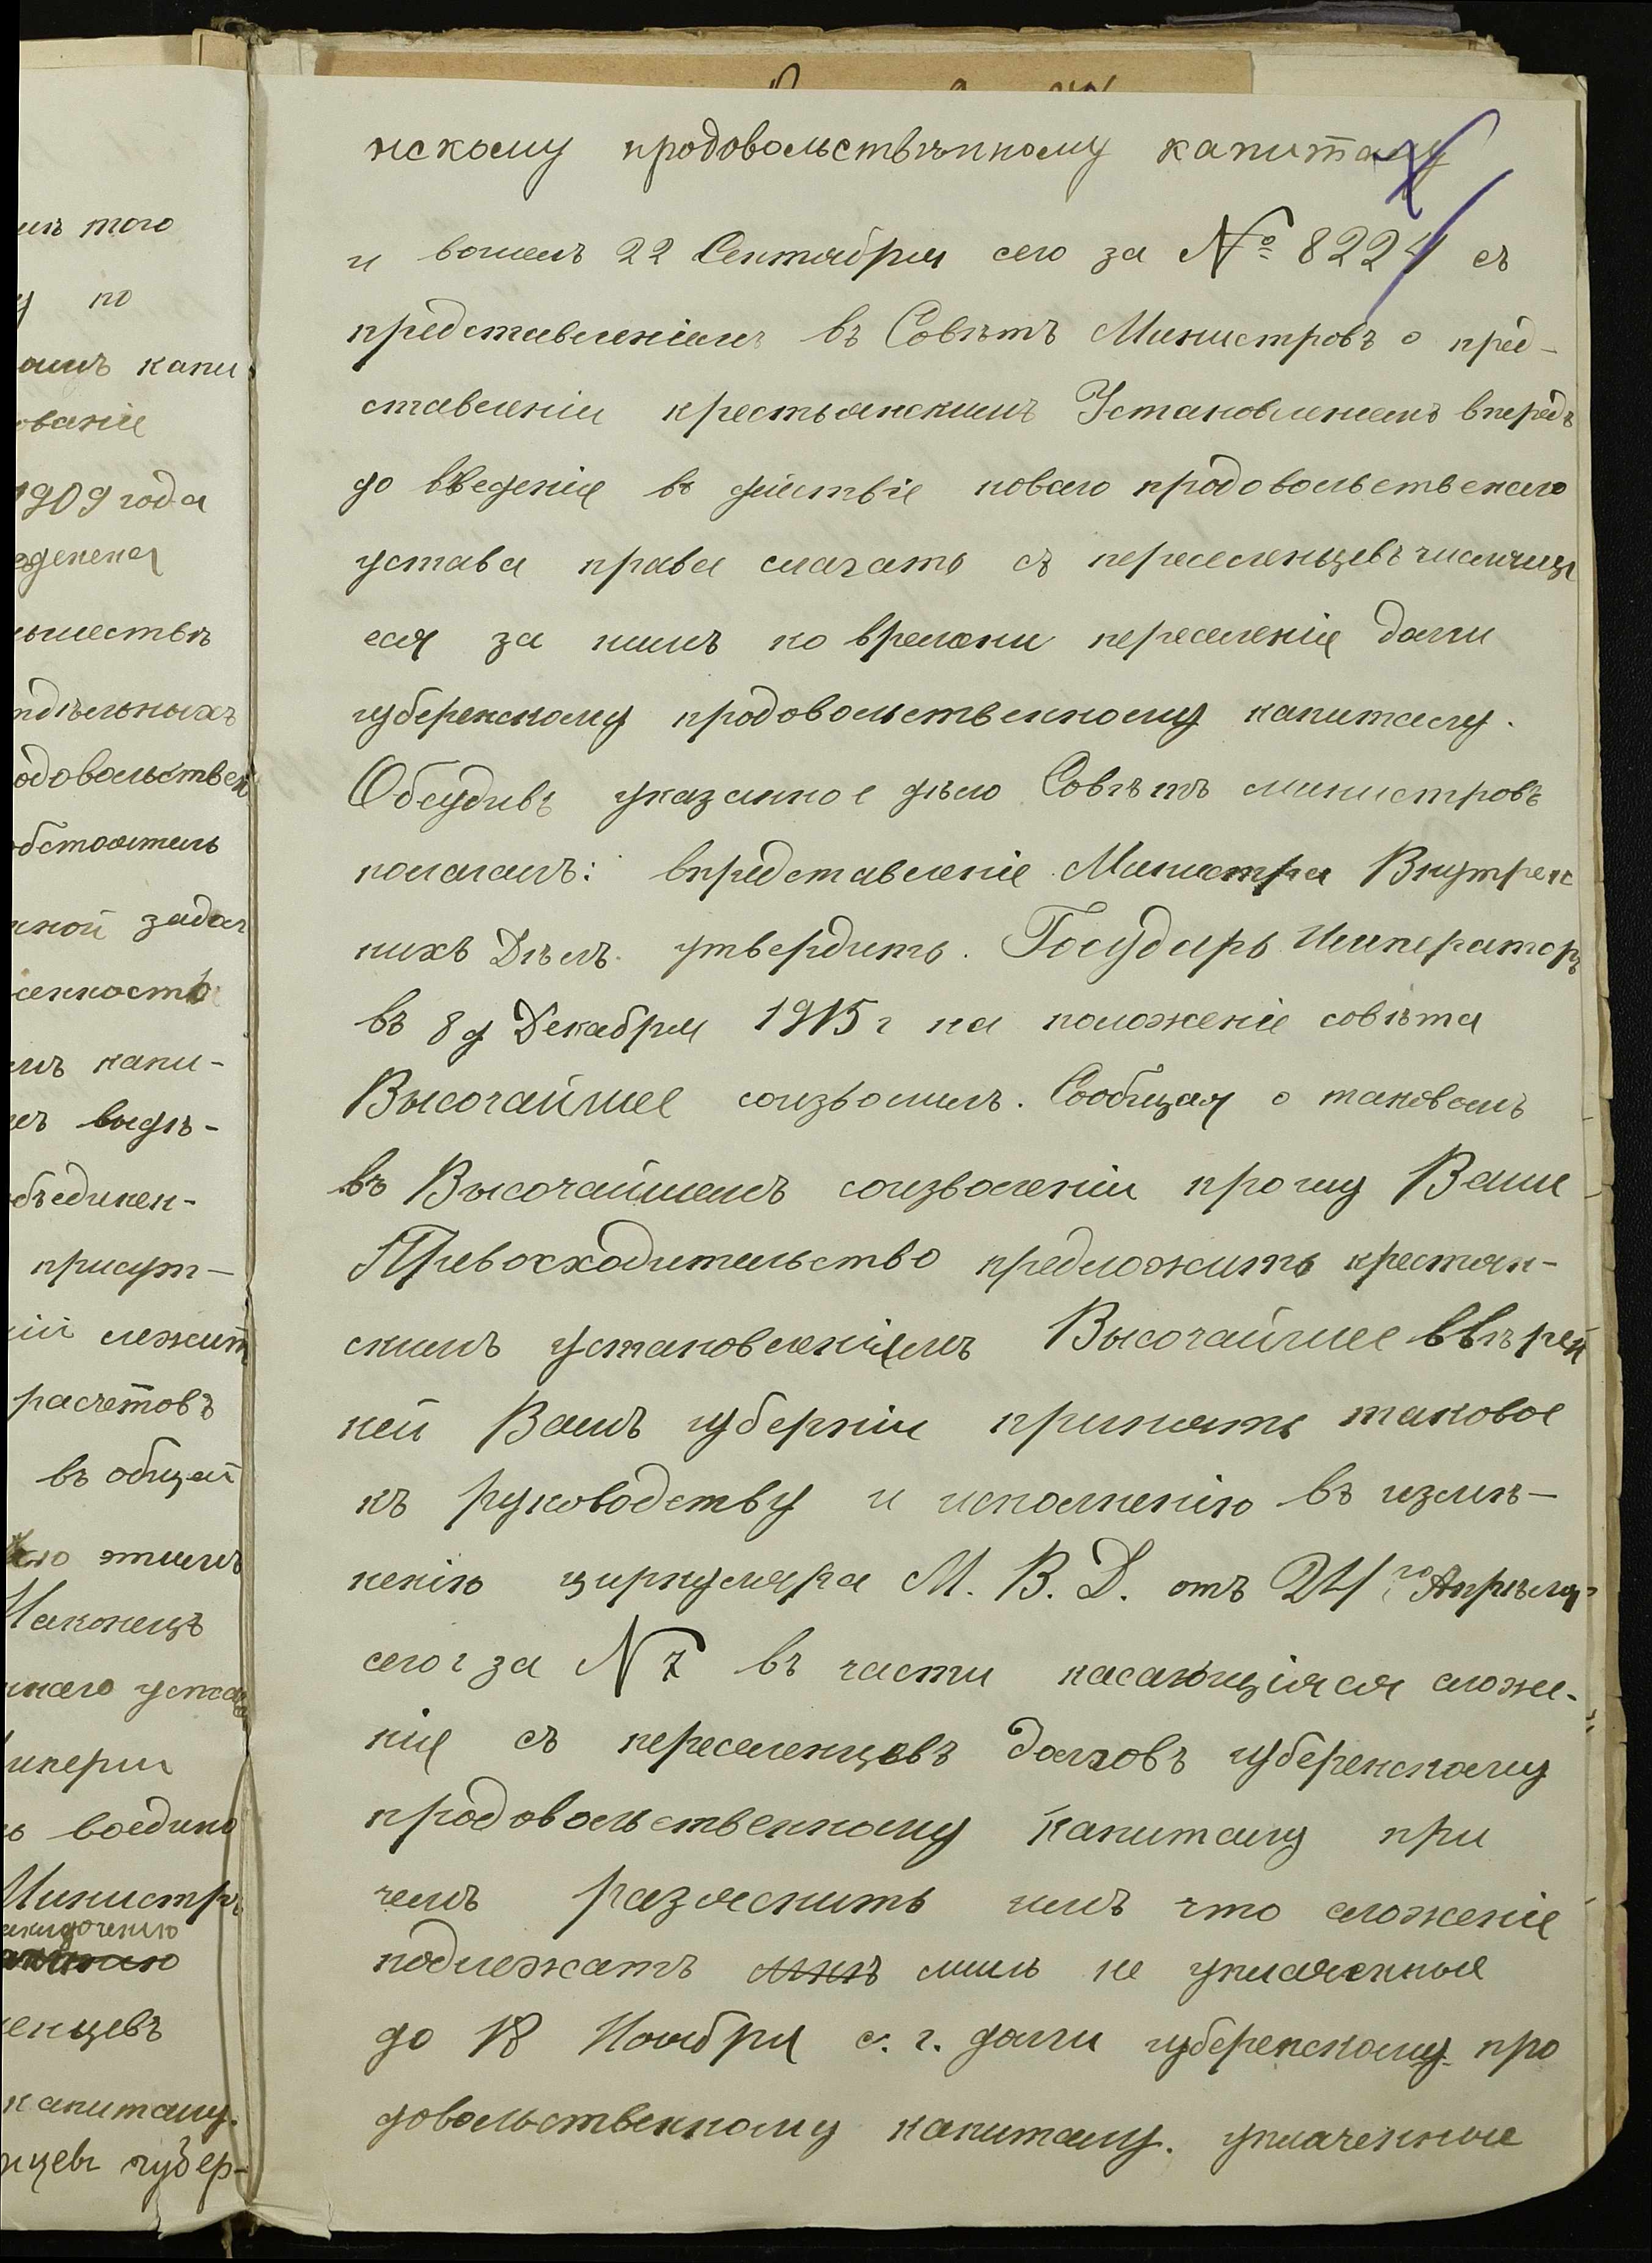 нскому продовольственному капиталу
и вошелъ 22 Сентября сего за № 8224 съ
представленіемъ въ Совѣтъ Министровъ о пред-
ставленіи крестьянскимъ Установленіемъ впредь
до введенія въ дѣйствіе новаго продовольственаго
устава права слагать съ переселенцевъ числящі
еся за нимъ по времени переселенія долги
губеренскому продовольственному капиталу.
Обсудивъ указанное дѣло Совѣтъ министровъ
полагалъ: впредставленіе Министра Внутрен
нихъ Дѣлъ утвердить. Государь Императоръ
въ 8 д Декабря 1915 г на положеніе совѣта
Высочайше соизволилъ. Сообщая о таковомъ
въ Высочайшемъ соизволеніи прошу Ваше
Превосходительство предложить крестьян-
скимъ установленіямъ Высочайше ввѣрен
ней Вамъ губерніи принять таковое
къ руководству и исполненію въ измѣ-
неніе циркуляра М. В. Д. отъ 24го Апрѣля
сего г за N 7 въ части касающіяся сложе-
нія съ переселенцевъ долговъ губеренскому
продовольственному капиталу при
чемъ разяснить имъ что сложенію
подлежатъ лишь не уплаченные
до 18 Ноября с. г. долги губеренскому про
довольственному капиталу. уплаченные
мъ того
у по
капи
ованіе
1909 года
ньшествѣ
одовольствен
обстоятель
нной задач
енность
мъ капи-
выдѣ-
бъединен-
присут-
ій лежит
расчетовъ
въ общей
этимъ
Наконецъ
наго устав
имперіи
воедино
Министръ
енцевъ
капиталу.
нцевъ губер-